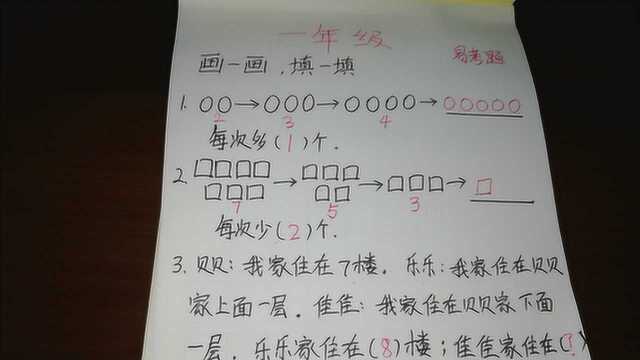 一年级
易考题
画一画，填一填
1. ○○→○○○→○○○○→○○○○○
2 3 4
每次多(1)个.
2. □□□□□□□→□□□□□→□□□→□
7 5 3
每次少(2)个.
3. 贝贝：我家住在7楼. 乐乐：我家住在贝贝
家上面一层. 佳佳：我家住在贝贝家下面
一层. 乐乐家住在(8)楼；佳佳家住在(